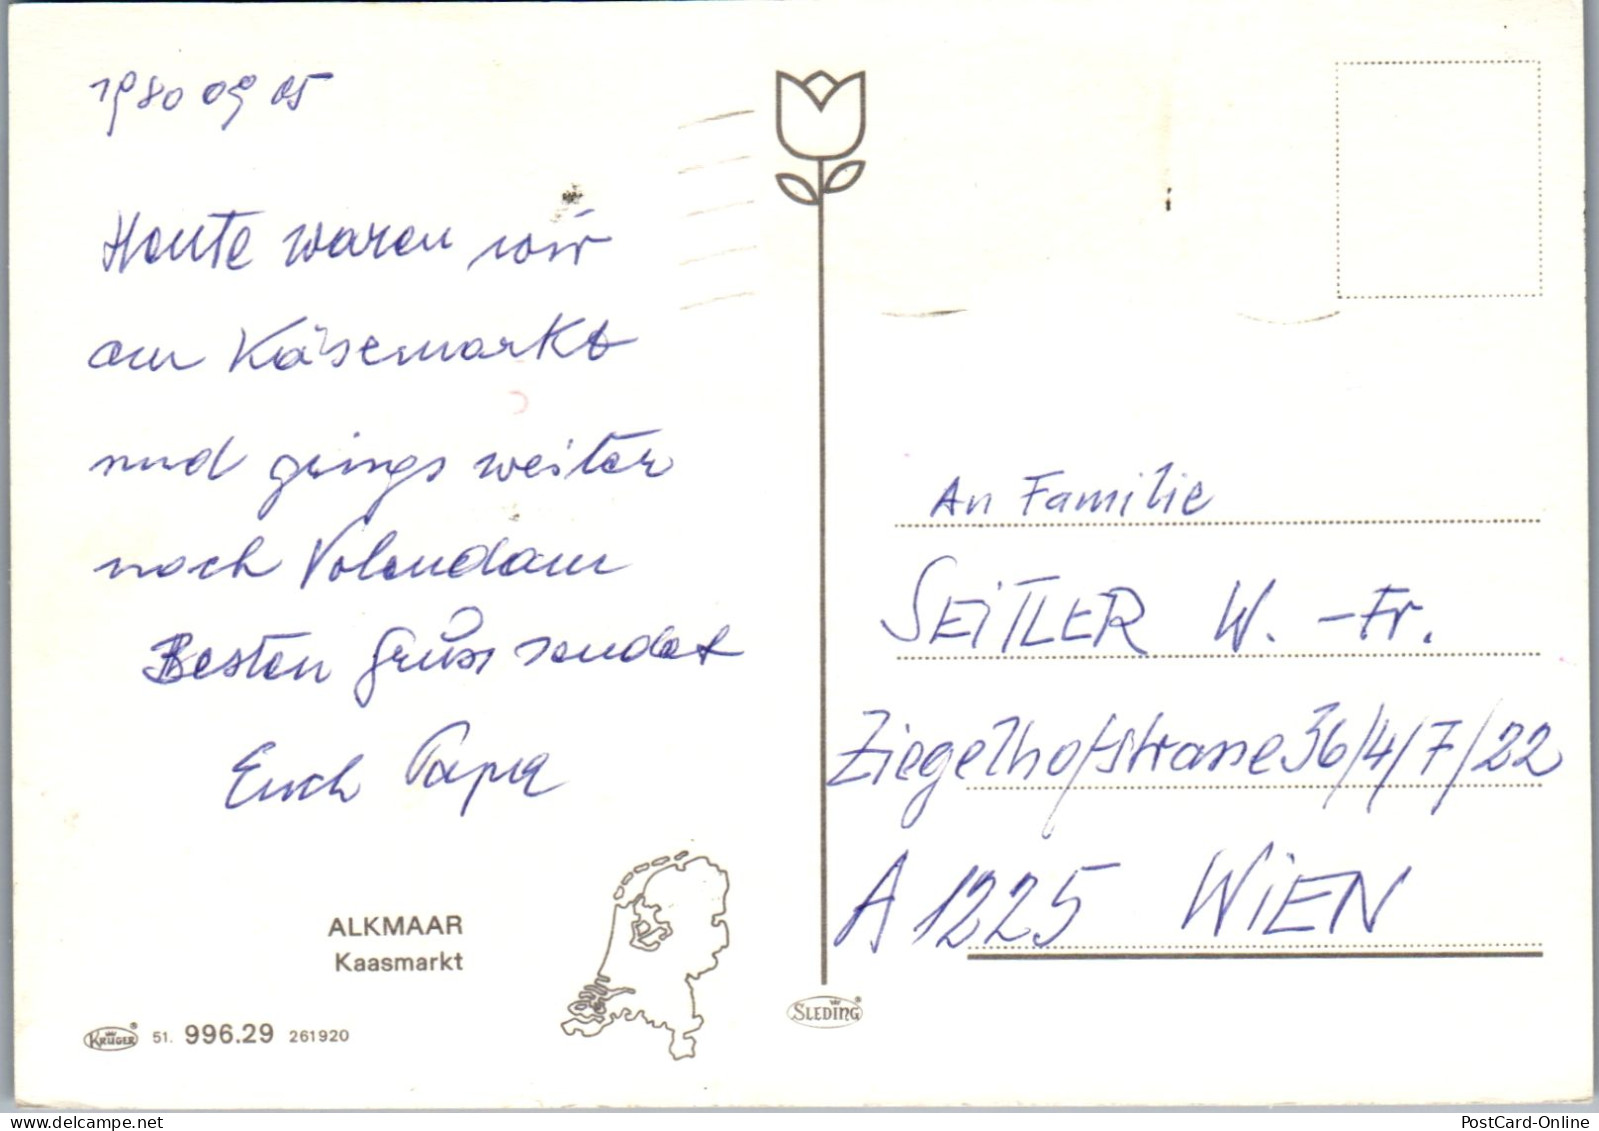 1980 09 05
Heute waren wir
am Käsemarkt
und gings weiter
nach Volendam
Besten Grüss sendet
Euch Papa
ALKMAAR
Kaasmarkt
KRÜGER® 51. 996.29 261920
SLEDING®
An Familie
SEITLER W. -Fr.
Ziegelhofstrasse 36/4/7/22
A 1225 WIEN
PostCard-Online